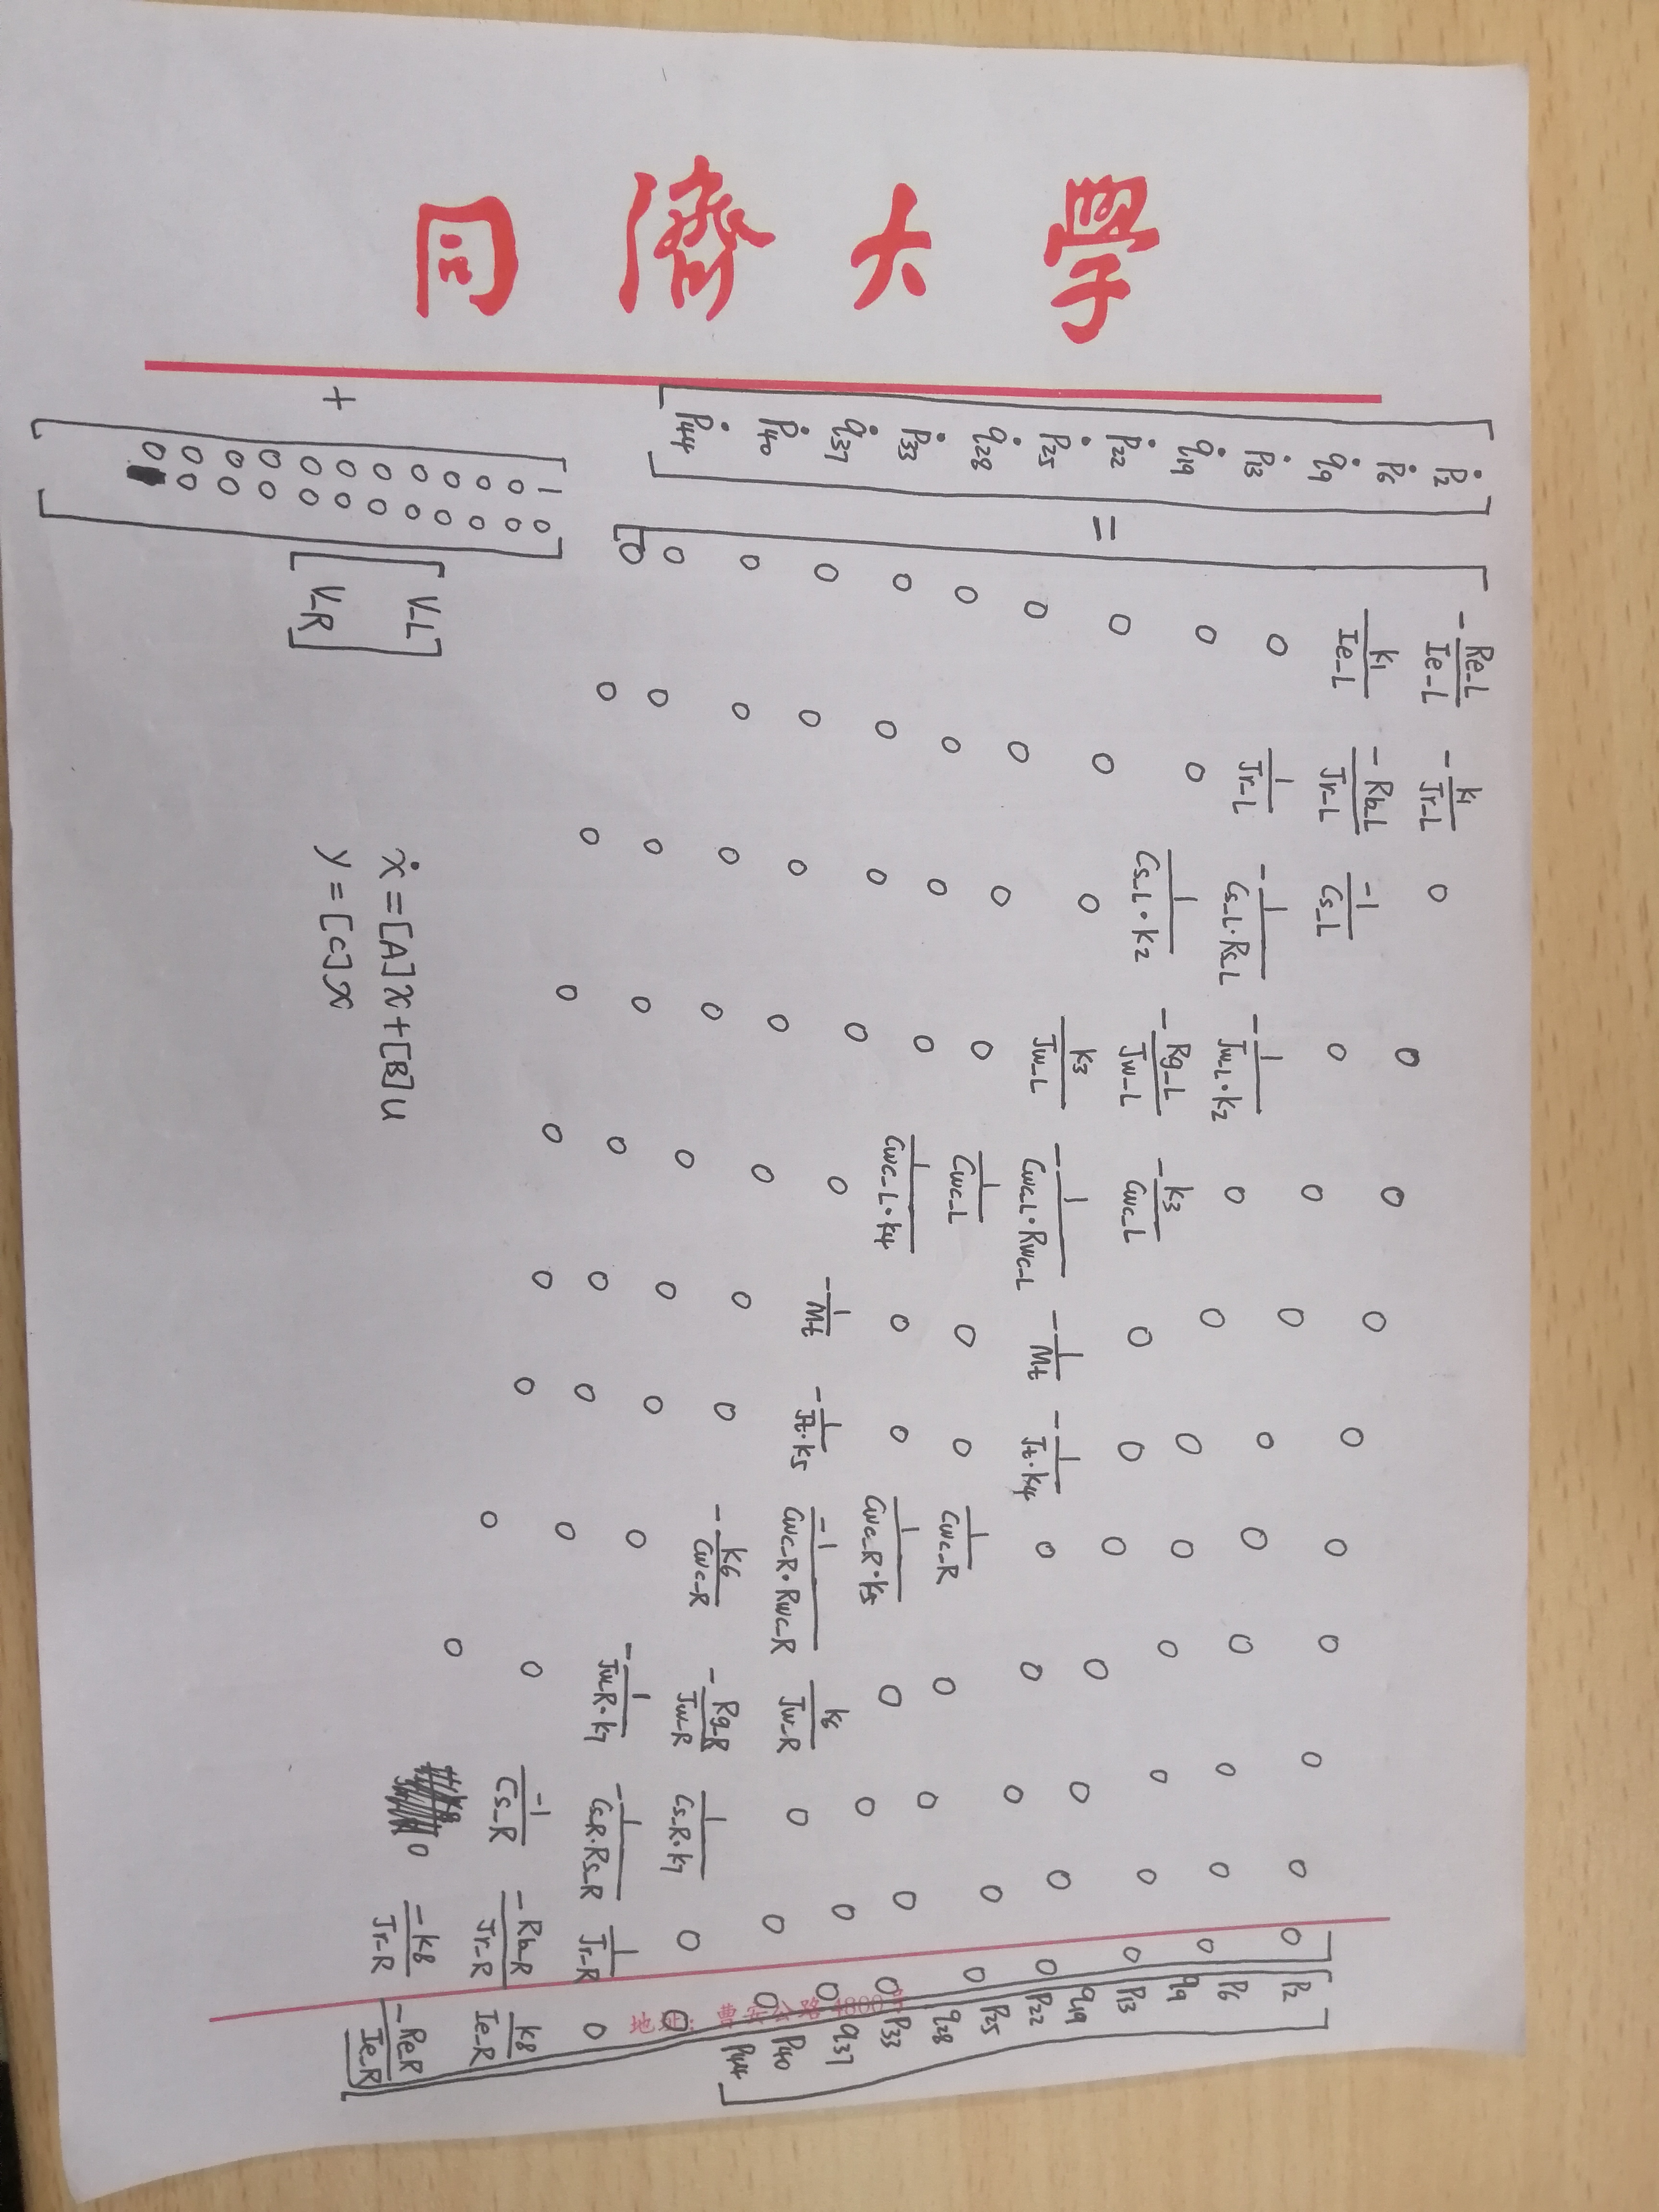 同濟大學
[ṗ2 ṗ6 q̇9 ṗ13 q̇19 ṗ22 ṗ25 q̇28 ṗ33 q̇37 ṗ40 ṗ44] =
-Re_L/Ie_L -k1/Jr_L 0 0 0 0 0 0 0 0 0 0 p2
k1/Ie_L -Rb_L/Jr_L -1/Cs_L 0 0 0 0 0 0 0 0 0 p6
0 1/Jr_L -1/Cs_L·Rs_L -1/Jw_L·k2 0 0 0 0 0 0 0 0 q9
0 0 1/Cs_L·k2 -Rg_L/Jw_L -k3/Cwc_L 0 0 0 0 0 0 0 p13
0 0 0 k3/Jw_L -1/Cwc_L·Rwc_L -1/Mt -1/Jt·k4 0 0 0 0 0 q19
0 0 0 0 1/Cwc_L 0 0 1/Cwc_R 0 0 0 0 p22
0 0 0 0 1/Cwc_L·k4 0 0 1/Cwc_R·k5 0 0 0 0 p25
0 0 0 0 0 -1/Mt -1/Jt·k5 -1/Cwc_R·Rwc_R k6/Jw_R 0 0 0 q28
0 0 0 0 0 0 0 -k6/Cwc_R -Rg_R/Jw_R 1/Cs_R·k7 0 0 p33
0 0 0 0 0 0 0 0 -1/Jw_R·k7 -1/Cs_R·Rs_R 1/Jr_R 0 q37
0 0 0 0 0 0 0 0 0 -1/Cs_R -Rb_R/Jr_R k8/Ie_R p40
0 0 0 0 0 0 0 0 0 0 -k8/Jr_R -Re_R/Ie_R p44
+
1 0
0 0
0 0
0 0
0 0
0 0
0 0
0 0
0 0
0 0
0 0
[V_L]
[V_R]
ẋ=[A]x+[B]u
y=[C]x
地址: 曹安公路4800号